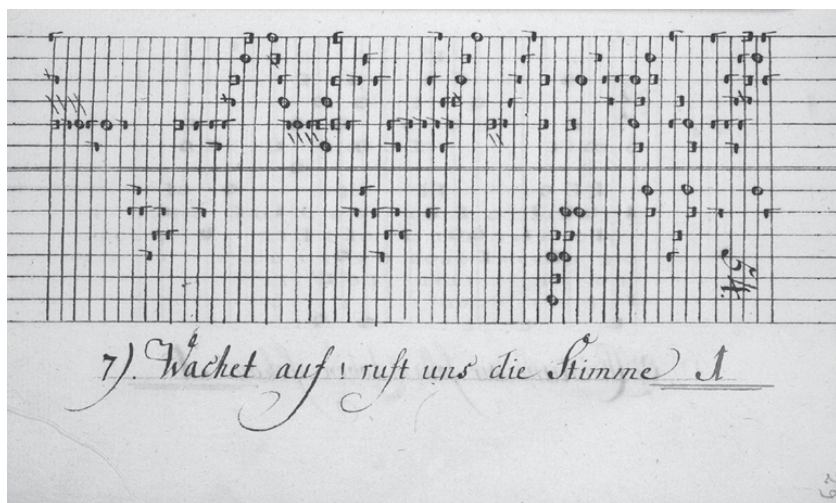 54.
7). Wachet auf! ruft uns die Stimme